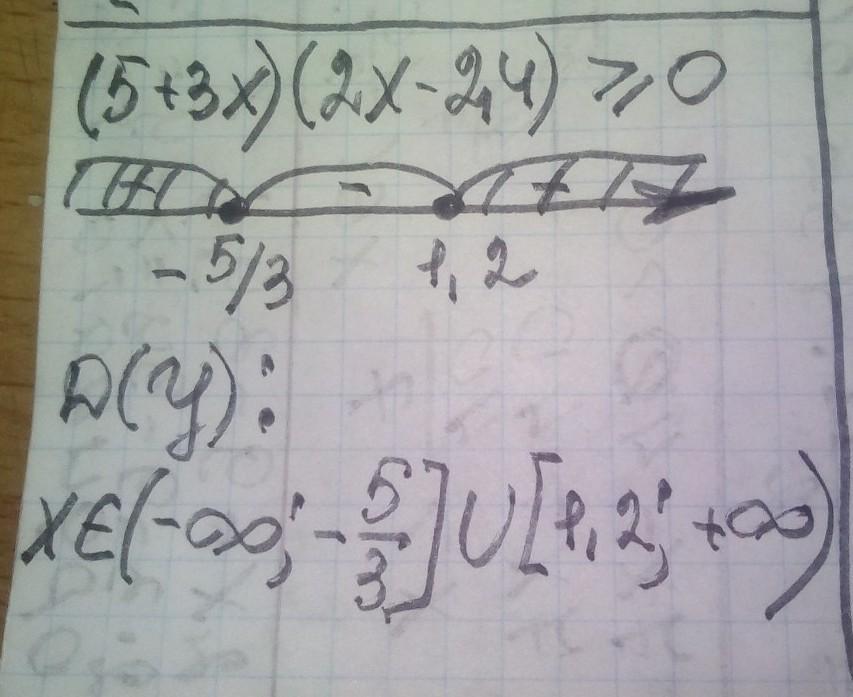 (5+3x)(2x-2,4) ⩾ 0
+ - +
-5/3 1,2
D(y):
xϵ(-∞; -5/3]∪[1,2; +∞)